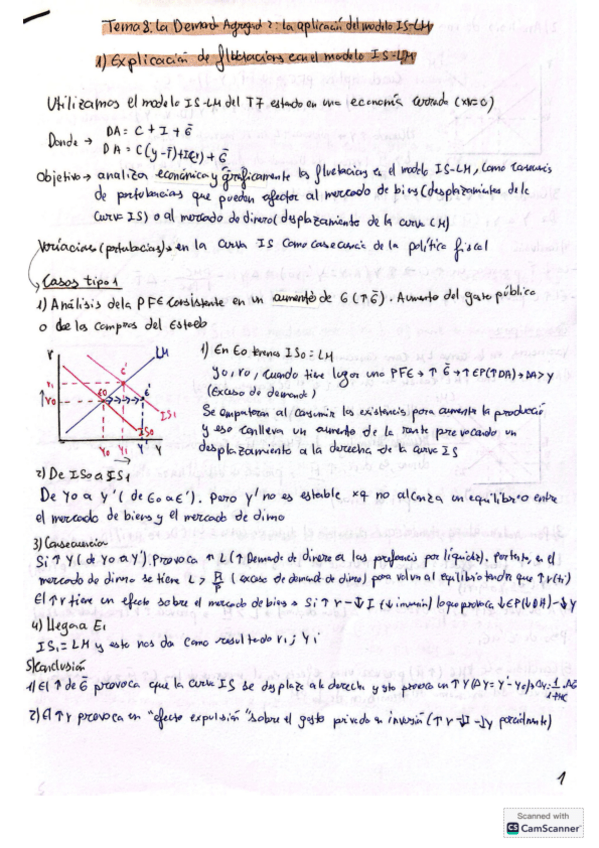 Tema 8: La Demanda Agregada 2: la aplicación del modelo IS-LM
1) Explicación de fluctuaciones con el modelo IS-LM
Utilizamos el modelo IS-LM del T7 estando en una economía cerrada (XN=0)
Donde → DA = C + I + G̅
DA = C(y-T̅)+I(r)+G̅
Objetivo → analiza económica y gráficamente las fluctuaciones en el modelo IS-LM, como consecuencia
de perturbaciones que pueden afectar al mercado de bienes (desplazamientos de la
curva IS) o al mercado de dinero (desplazamiento de la curva LM)
Variaciones (perturbaciones) en la curva IS como consecuencia de la política fiscal
Casos tipo 1
1) Análisis de la PFE consistente en un aumento de G (↑G̅). Aumento del gasto público
o de las compras del Estado
r
LM
r₁
↑r₀
E₀
E'
IS₀
IS₁
Y₀ Y₁ Y' Y
1) En E₀ tenemos IS₀ = LM
y₀, r₀, cuando tiene lugar una PFE → ↑ G̅ → ↑EP(↑DA) → DA > y
(Exceso de demanda)
Se empiezan a consumir las existencias para aumentar la producción
y eso conlleva un aumento de la renta provocando un
desplazamiento a la derecha de la curva IS
2) De IS₀ a IS₁
De Y₀ a y' (de E₀ a E'). Pero y' no es estable xq no alcanza un equilibrio entre
el mercado de bienes y el mercado de dinero
3) Consecuencia
Si ↑Y (de Y₀ a Y'). Provoca ↑ L (↑Demanda de dinero a las preferencias por liquidez). Por tanto, en el
mercado de dinero se tiene L > (exceso de demanda de dinero) para volver al equilibrio tendrá que ↑r (r₁)
El ↑r tiene un efecto sobre el mercado de bienes → Si ↑r → ↓I (↓ inversión) lo que provoca ↓EP(↓DA) → ↓Y
4) Llegar a E₁
IS₁ = LM y esto nos da como resultado r₁ y Y₁
5) Conclusión
1) El ↑ de G̅ provoca que la curva IS se desplaze a la derecha y esto provoca un ↑Y (ΔY = Y' - Y₀)
2) El ↑Y provoca un "efecto expulsión" sobre el gasto privado en inversión (↑r → ↓I → ↓y parcialmente)
1
Scanned with
CS CamScanner